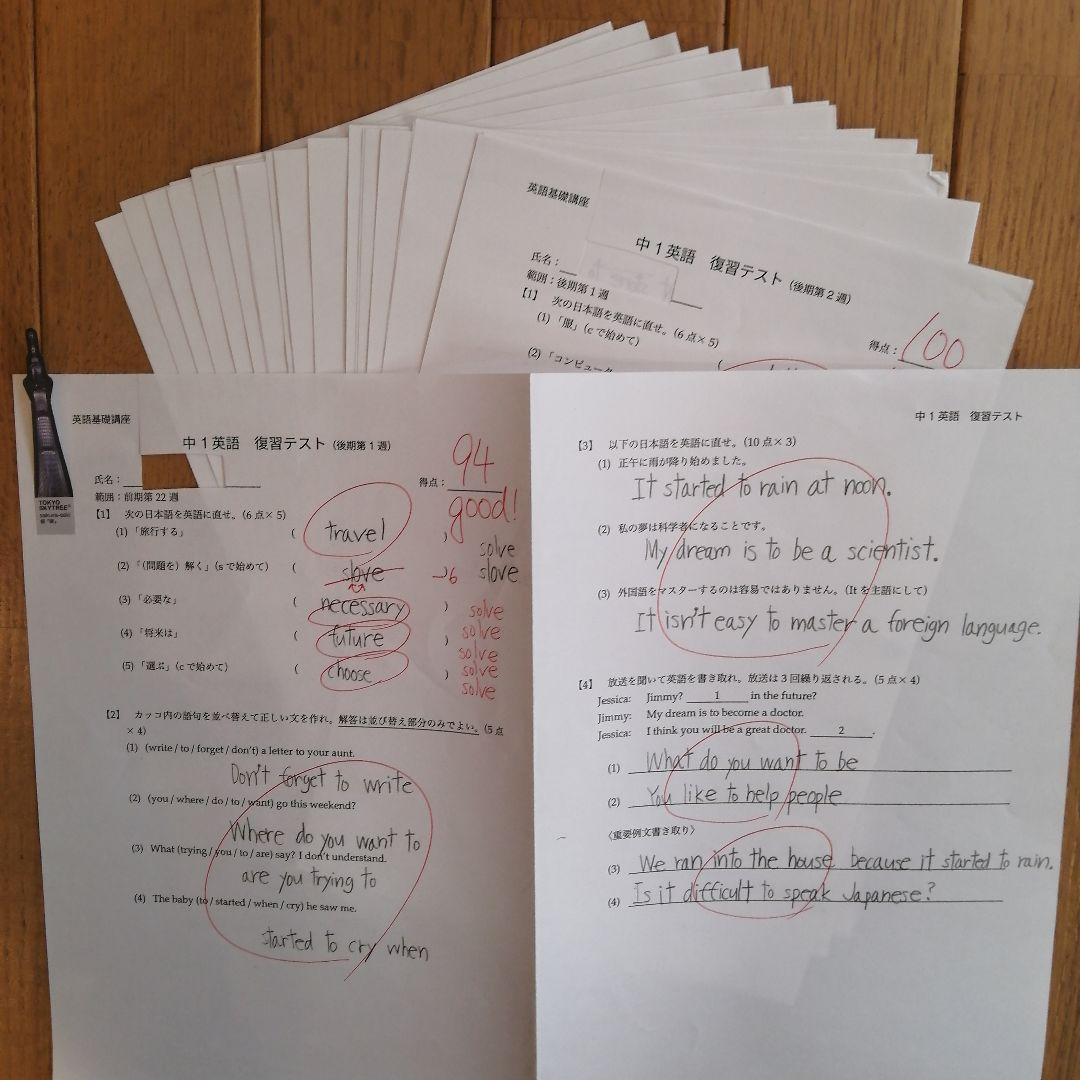 英語基礎講座
中1英語 復習テスト(後期第2週)
氏名:
範囲:後期第1週
得点:100
【1】 次の日本語を英語に直せ。(6点×5)
(1)「服」(cで始めて)
(2)「コンピュータ
英語基礎講座
中1英語 復習テスト(後期第1週)
氏名:
得点:94
good!
範囲:前期第22週
【1】 次の日本語を英語に直せ。(6点×5)
(1)「旅行する」 ( travel )
(2)「(問題を)解く」(sで始めて) ( slove ) -6
solve
slove
(3)「必要な」 ( necessary ) solve
(4)「将来は」 ( future ) solve
solve
(5)「選ぶ」(cで始めて) ( choose ) solve
solve
【2】 カッコ内の語句を並べ替えて正しい文を作れ。解答は並び替え部分のみでよい。(5点
×4)
(1) (write / to / forget / don't) a letter to your aunt.
Don't forget to write
(2) (you / where / do / to / want) go this weekend?
Where do you want to
(3) What (trying / you / to / are) say? I don't understand.
are you trying to
(4) The baby (to / started / when / cry) he saw me.
started to cry when
中1英語 復習テスト
【3】 以下の日本語を英語に直せ。(10点×3)
(1) 正午に雨が降り始めました。
It started to rain at noon.
(2) 私の夢は科学者になることです。
My dream is to be a scientist.
(3) 外国語をマスターするのは容易ではありません。(Itを主語にして)
It isn't easy to master a foreign language.
【4】 放送を聞いて英語を書き取れ。放送は3回繰り返される。(5点×4)
Jessica: Jimmy? 1 in the future?
Jimmy: My dream is to become a doctor.
Jessica: I think you will be a great doctor. 2 .
(1) What do you want to be
(2) You like to help people
〈重要例文書き取り〉
(3) We ran into the house because it started to rain.
(4) Is it difficult to speak Japanese?
TOKYO
SKYTREE